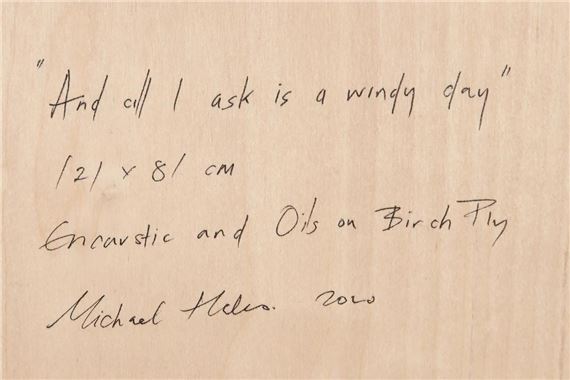 "And all I ask is a windy day"
121 x 81 cm
Encaustic and Oils on Birch Ply
Michael 2020